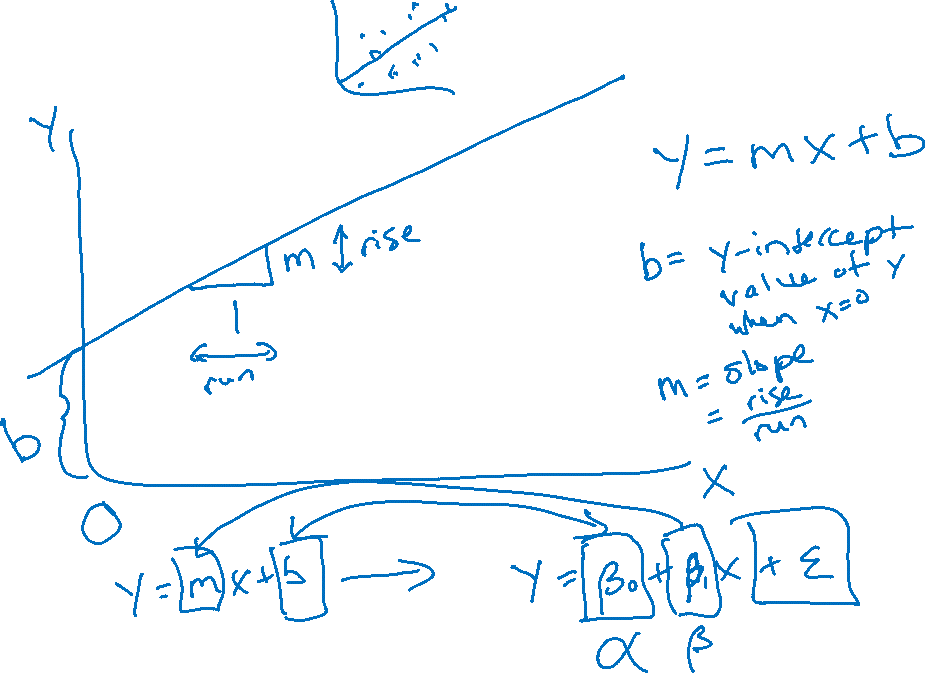 Y
m rise
1
run
b
0
X
Y = mx + b
b = Y-intercept
value of Y
when x=0
m = slope
= rise
run
Y = mx + b → Y = β₀ + β₁x + ε
α β